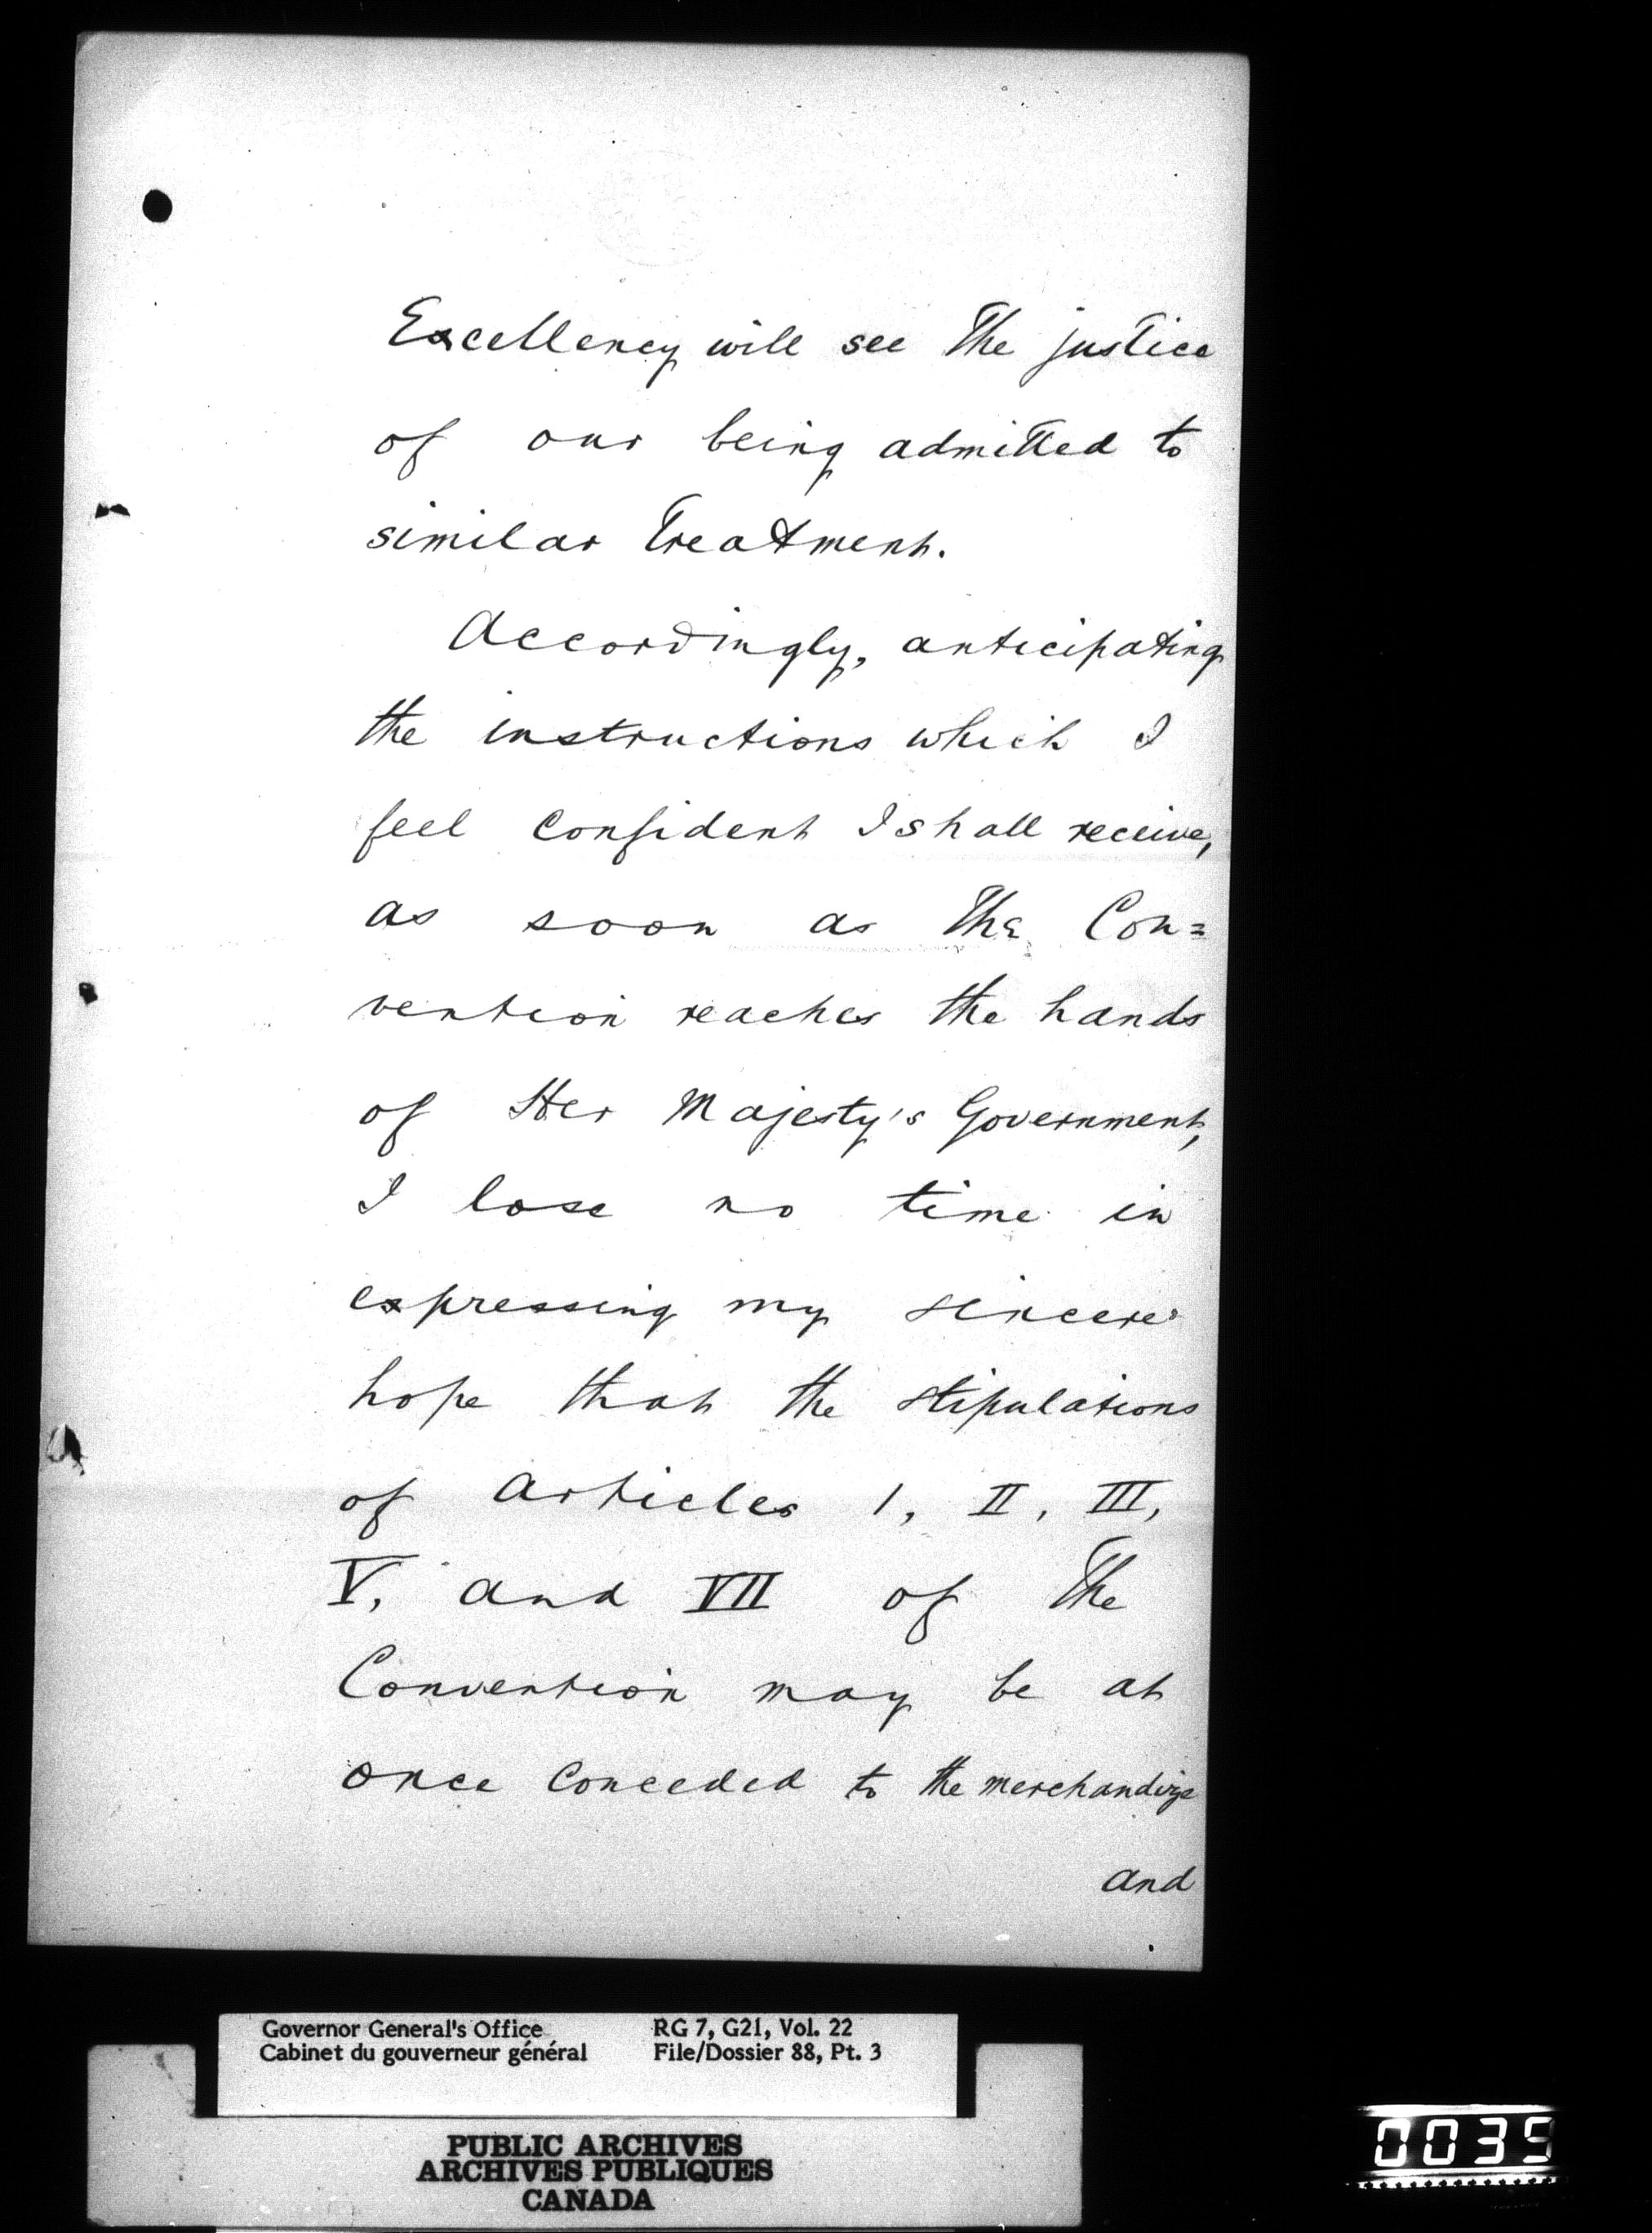 Excellency will see the justice
of our being admitted to
similar treatment.
Accordingly, anticipating
the instructions which I
feel confident I shall receive,
as soon as the Con=
vention reaches the hands
of Her Majesty's Government,
I lose no time in
expressing my sincere
hope that the stipulations
of Articles I, II, III,
V, and VII of the
Convention may be at
once conceded to the merchandize
and
Governor General's Office RG 7, G21, Vol. 22
Cabinet du gouverneur général File/Dossier 88, Pt. 3
PUBLIC ARCHIVES
ARCHIVES PUBLIQUES
CANADA
0035